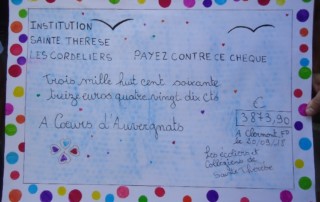 INSTITUTION
SAINTE THERESE
LES CORDELIERS
PAYEZ CONTRE CE CHEQUE
Trois mille huit cent soixante
treize euros quatre vingt dix cts
€
3873,90
A Coeurs d'Auvergnats
A Clermont Fd
le 20/03/08
Les écoliers et
Collégiens de
Sainte Thérèse